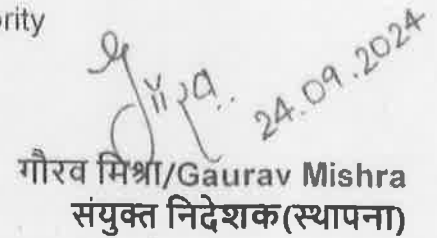 ority
24.09.2024
गौरव मिश्रा/Gaurav Mishra
संयुक्त निदेशक(स्थापना)